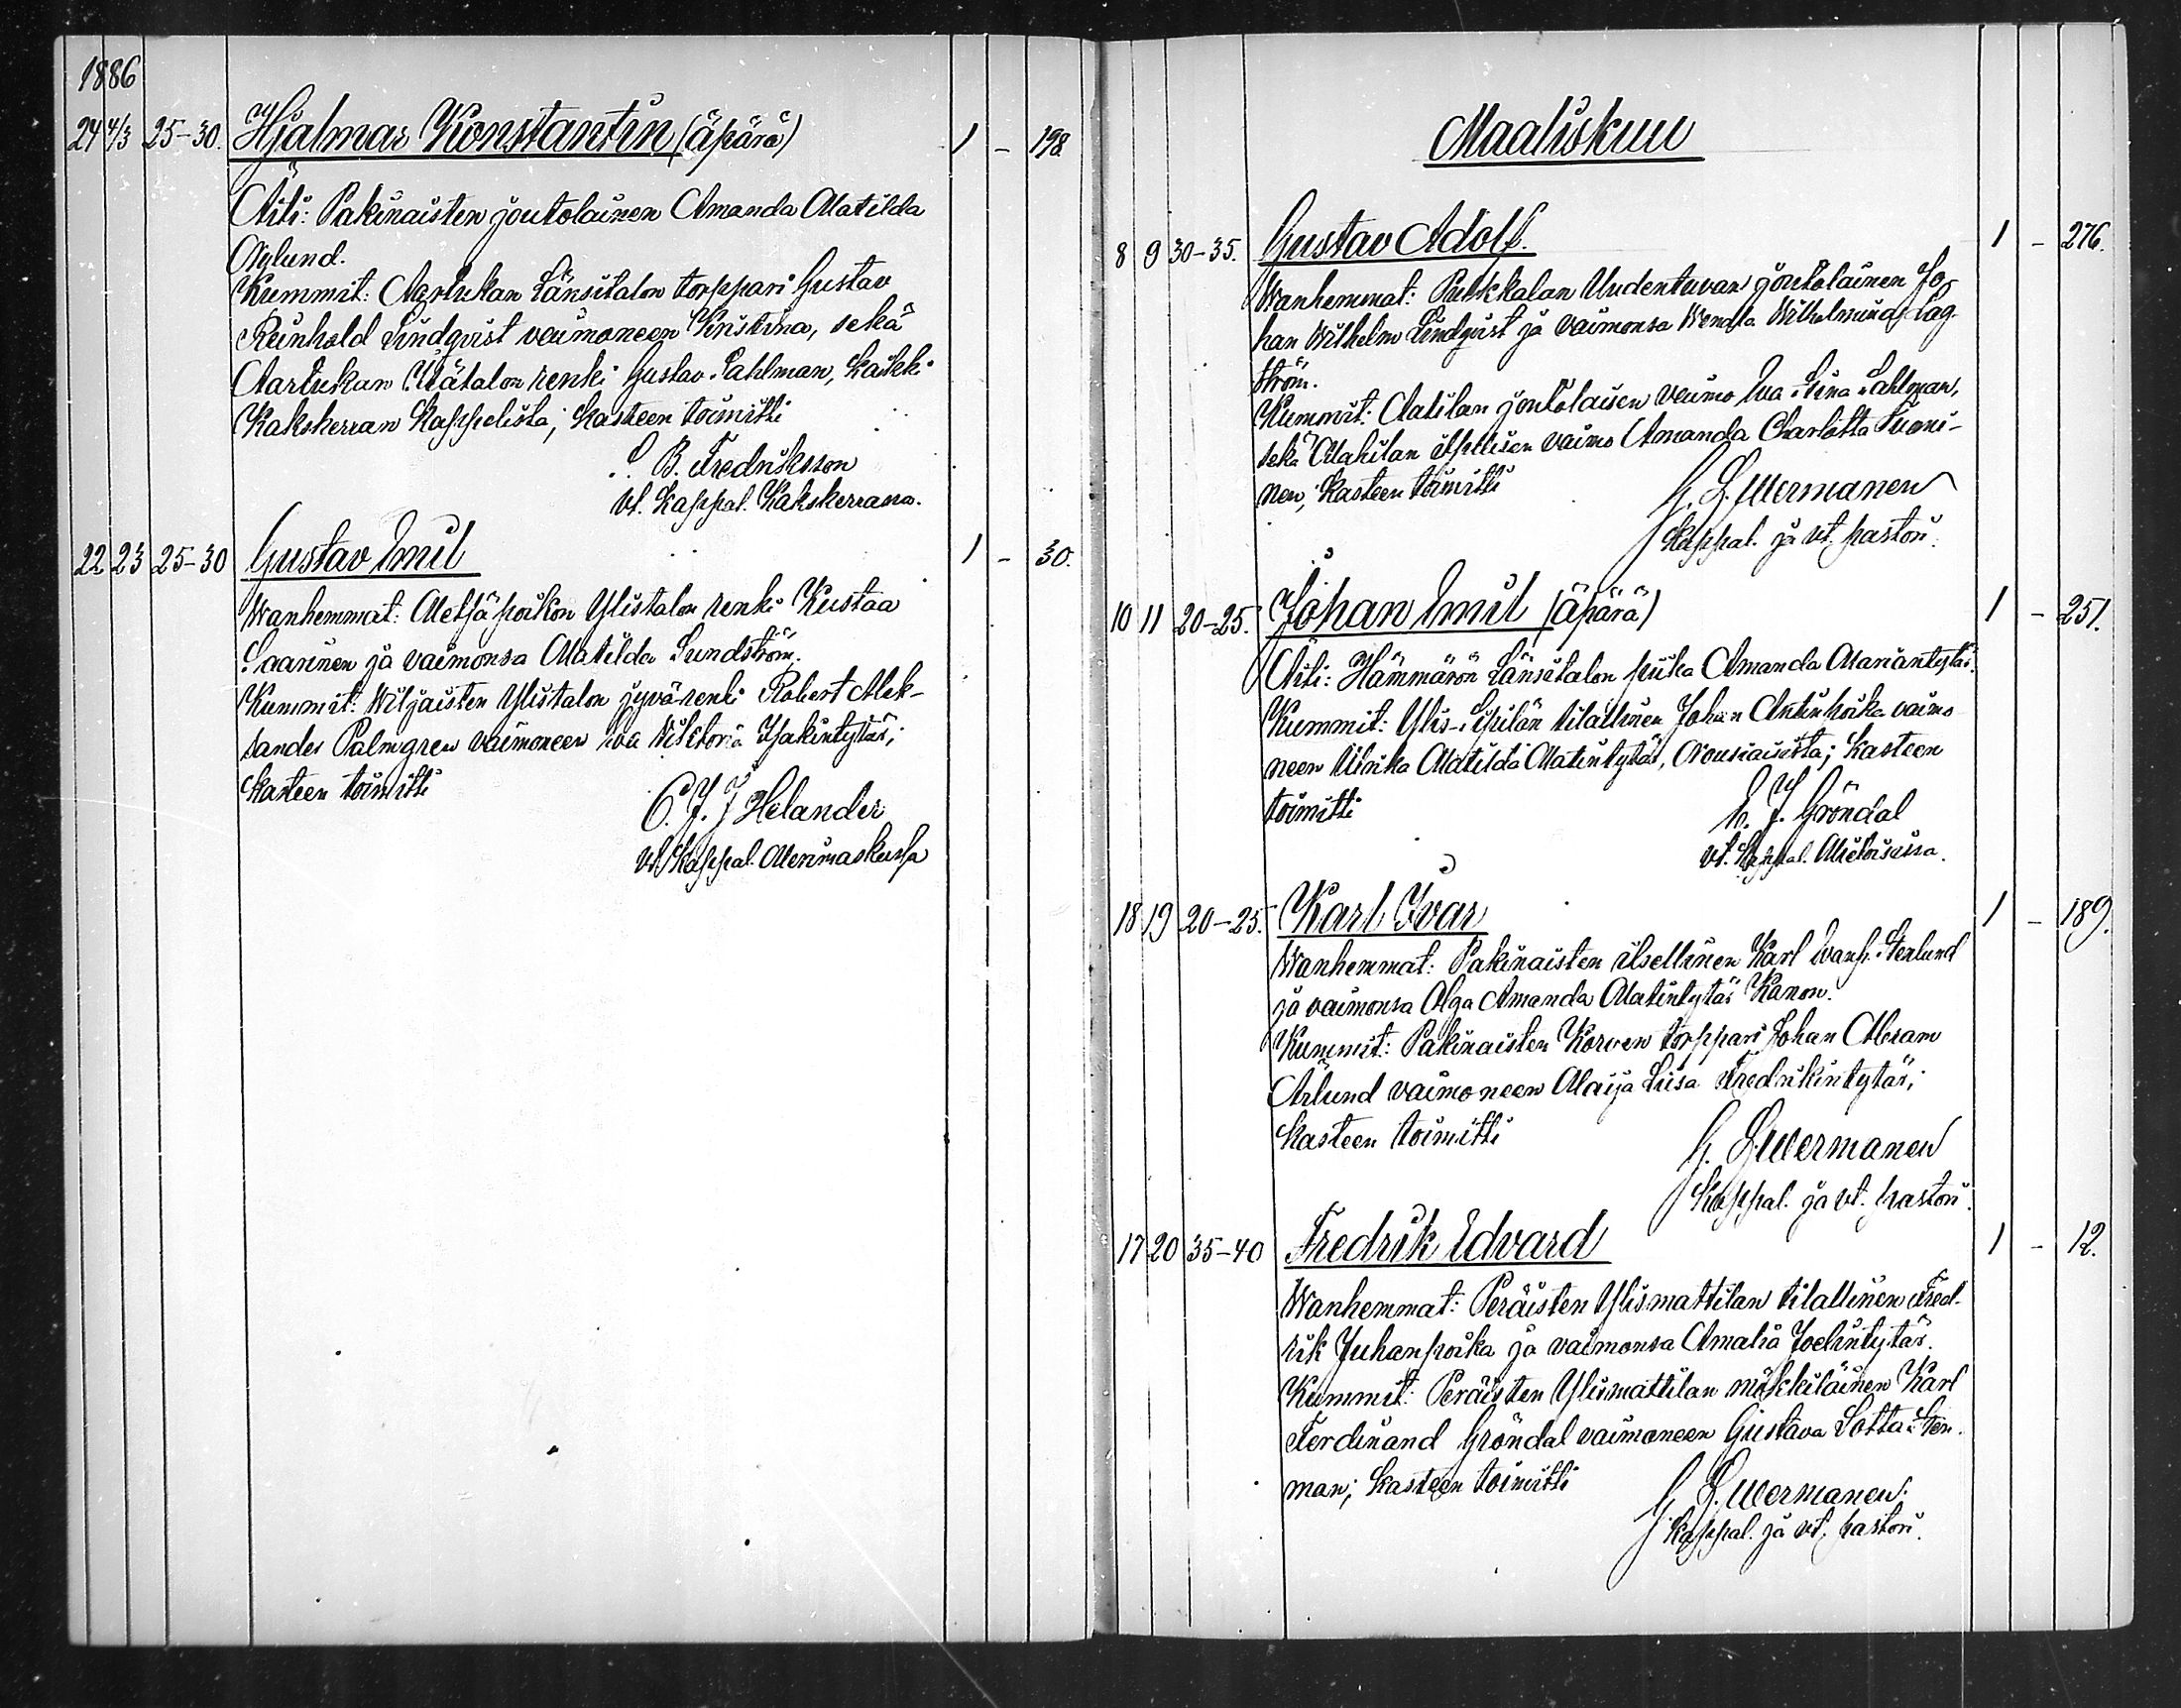 1886
24 4/3 25-30. Hjalmar Konstantin (äpärä) 1 - 198.
Äiti: Pakinaisten joutolainen Amanda Matilda
Nylund.
Kummit: Aarlukan Länsitalon torppari Gustav
Reinhold Lindqvist vaimoneen Kristina, sekä
Aarlukan Itätalon renki Gustav Sahlman, kaikki
Kakskerran kappelista; kasteen toimitti
S. B. Fredriksson
vt. kappal. Kakskerrassa.
22 23 25-30 Gustav Emil 1 - 30.
Wanhemmat: Metsäpoikon Ylistalon renki Kustaa
Saarinen ja vaimonsa Matilda Sundström.
Kummit: Wiljaisten Ylistalon jyvärenki Robert Alek-
sander Palmgren vaimoneen Eva Wiktoria Isakintytär;
kasteen toimitti
C. J. J Helander
vt. Kappal. Merimaskussa
Maaliskuu
8 9 30-35. Gustav Adolf. 1 - 276.
Wanhemmat: Pulkkalan Uudentuvan joutolainen Jo-
han Wilhelm Lindqvist ja vaimonsa Wendla Wilhelmina Lag-
ström.
Kummit: joutolaisen vaimo Eva Stina Sahlman,
sekä itsellisen vaimo Amanda Charlotta Suomi-
nen; kasteen toimitti
G. L. Wermanen
kappal. ja vt. pastori.
10 11 20-25. Johan Emil (äpärä) 1 - 251.
Äiti: Hämmärön Länsitalon piika Amanda Mariantytär.
Kummit: Ylis- tilallinen Johan Antinpoika vaimo-
neen Ulrika Matilda Matintytär, Nousiaisista; kasteen
toimitti
K. J. Gröndal
vt. kappal. Mietoisissa.
18 19 20-25. Karl Ivar 1 - 189.
Wanhemmat: Pakinaisten itsellinen Karl Evanp. Stenlund
ja vaimonsa Olga Amanda Matintytär Kanon.
Kummit: Pakinaisten Korven torppari Johan Abram
Ärlund vaimoneen Maija Liisa Fredrikintytär;
kasteen toimitti
G. L. Wermanen
Kappal. ja vt. pastori.
17 20 35-40 Fredrik Edvard 1 - 12.
Wanhemmat: Peräisten Ylismattilan tilallinen Fred-
rik Juhanpoika ja vaimonsa Amalia Joelintytär.
Kummit: Peräisten Ylismattilan mökkiläinen Karl
Ferdinand Gröndal vaimoneen Gustava Lotta Sten-
man; kasteen toimitti
G. L. Wermanen.
kappal. ja vt. pastori.